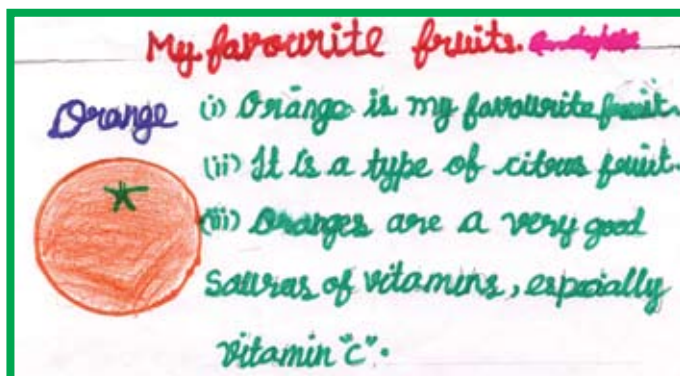 My favourite fruits.
Orange
(i) Orange is my favourite fruit.
(ii) It is a type of citrus fruit.
(iii) Oranges are a very good
Saurus of vitamins, especially
vitamin "C".